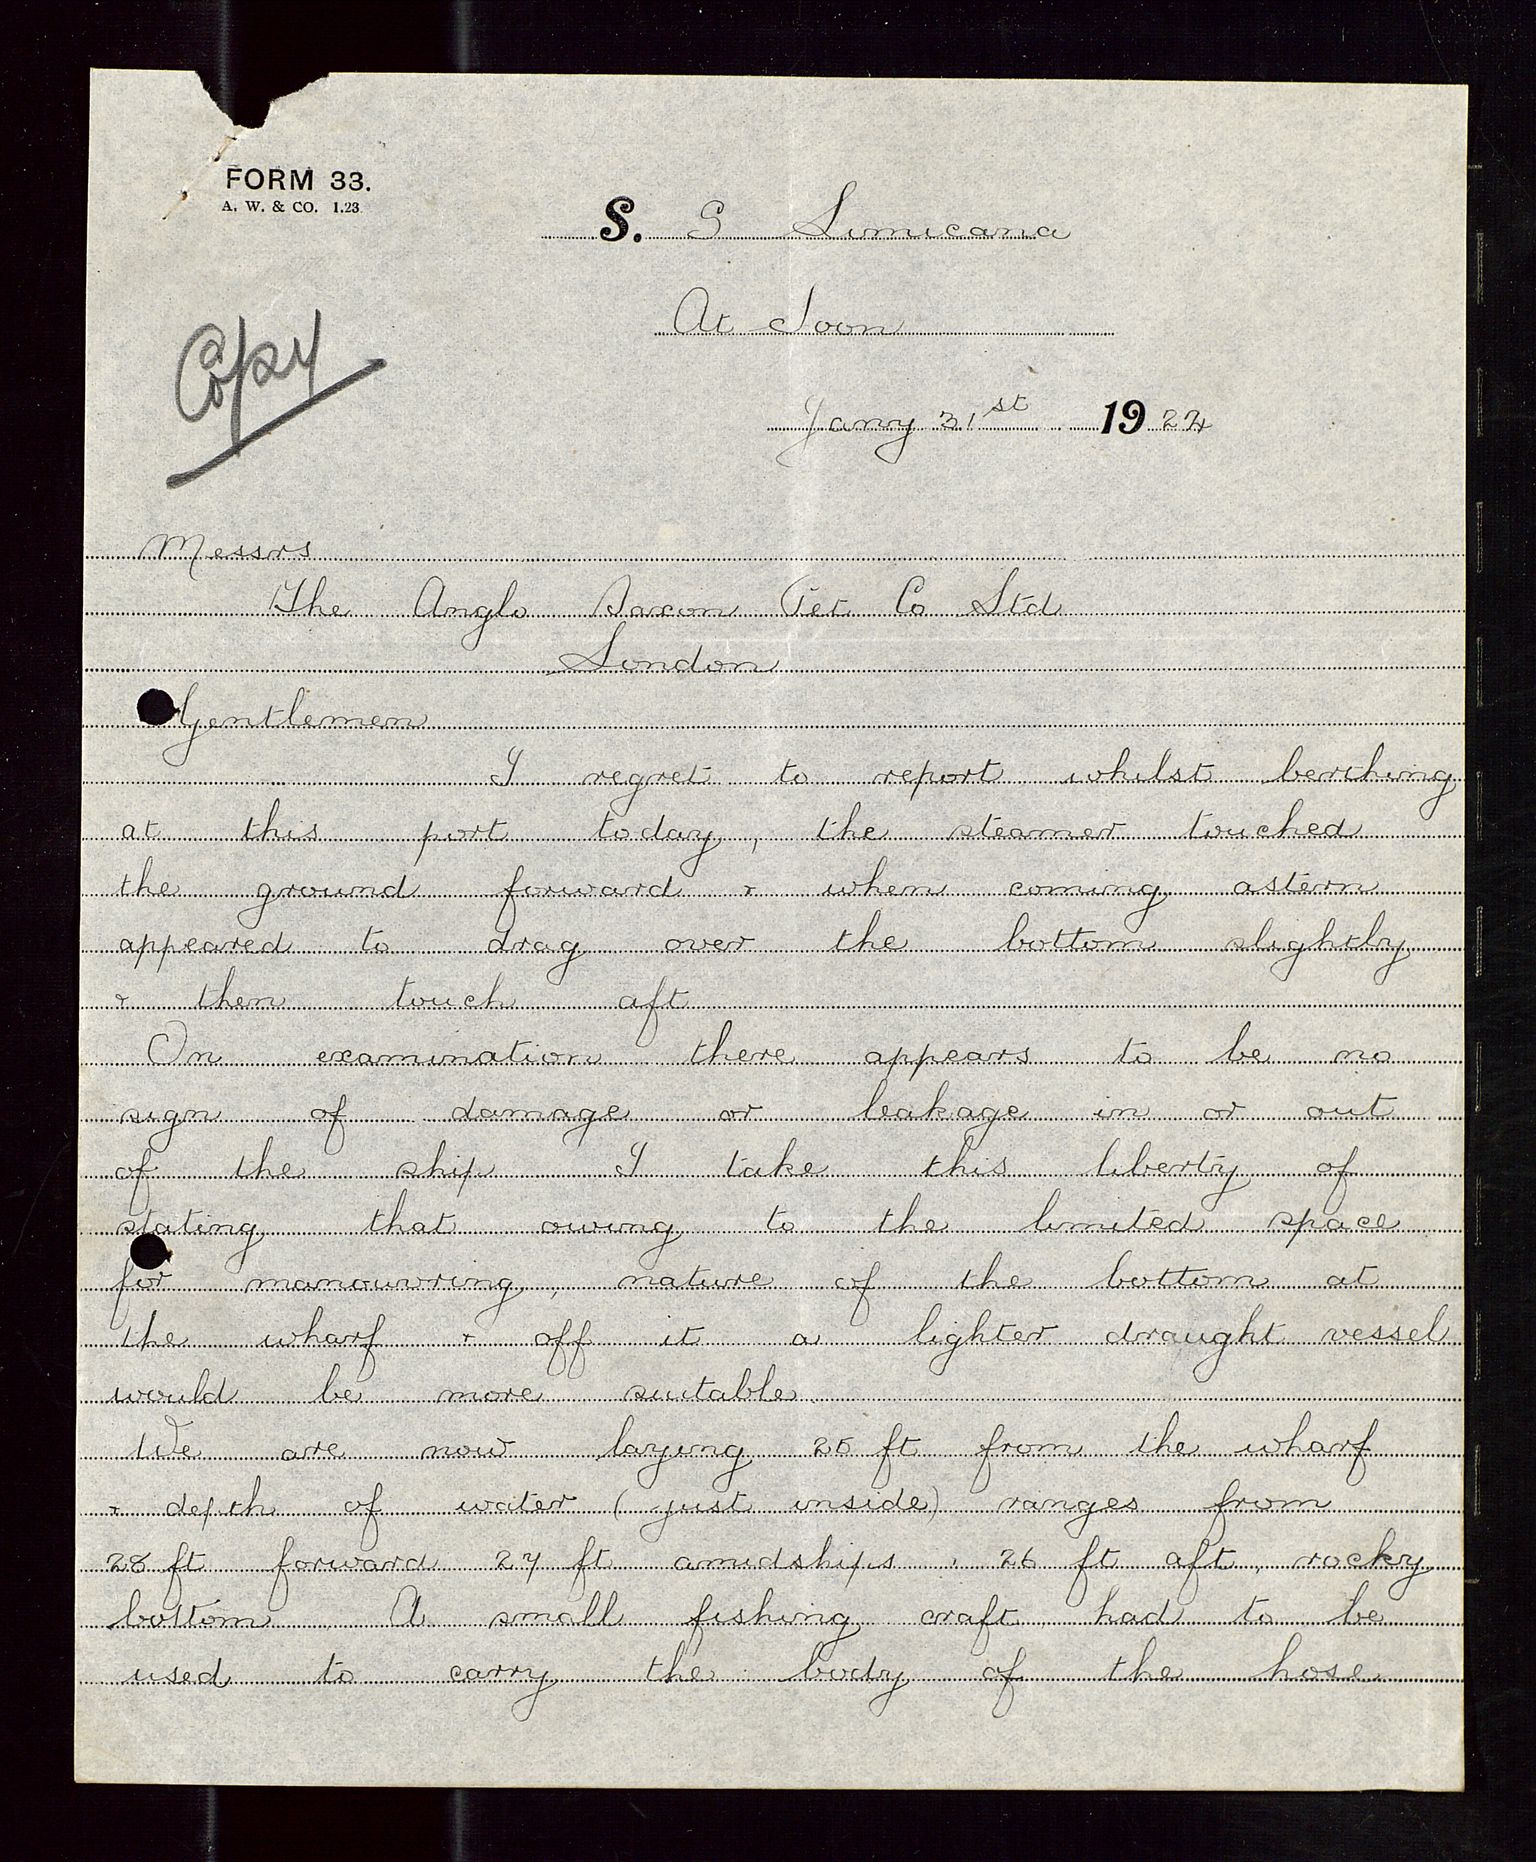 FORM 33.
A. W. & CO. 1.23
S. S Limicana
At Soon
Copy
Jany 31st 1924
Messrs
The Anglo Saxon Pet. Co Ltd
London
Gentlemen
I regret to report whilst berthing
at this port today, the steamer touched
the ground forward & when coming astern
appeared to drag over the bottom slightly
& then touch aft
On examination there appears to be no
sign of damage or leakage in or out
of the ship I take this liberty of
stating that owing to the limited space
for manouvring, nature of the bottom at
the wharf & off it a lighter draught vessel
would be more suitable.
We are now laying 25 ft from the wharf
& depth of water (just inside) ranges from
28 ft forward 27 ft amidships, 26 ft aft, rocky
bottom. A small fishing craft had to be
used to carry the body of the hose